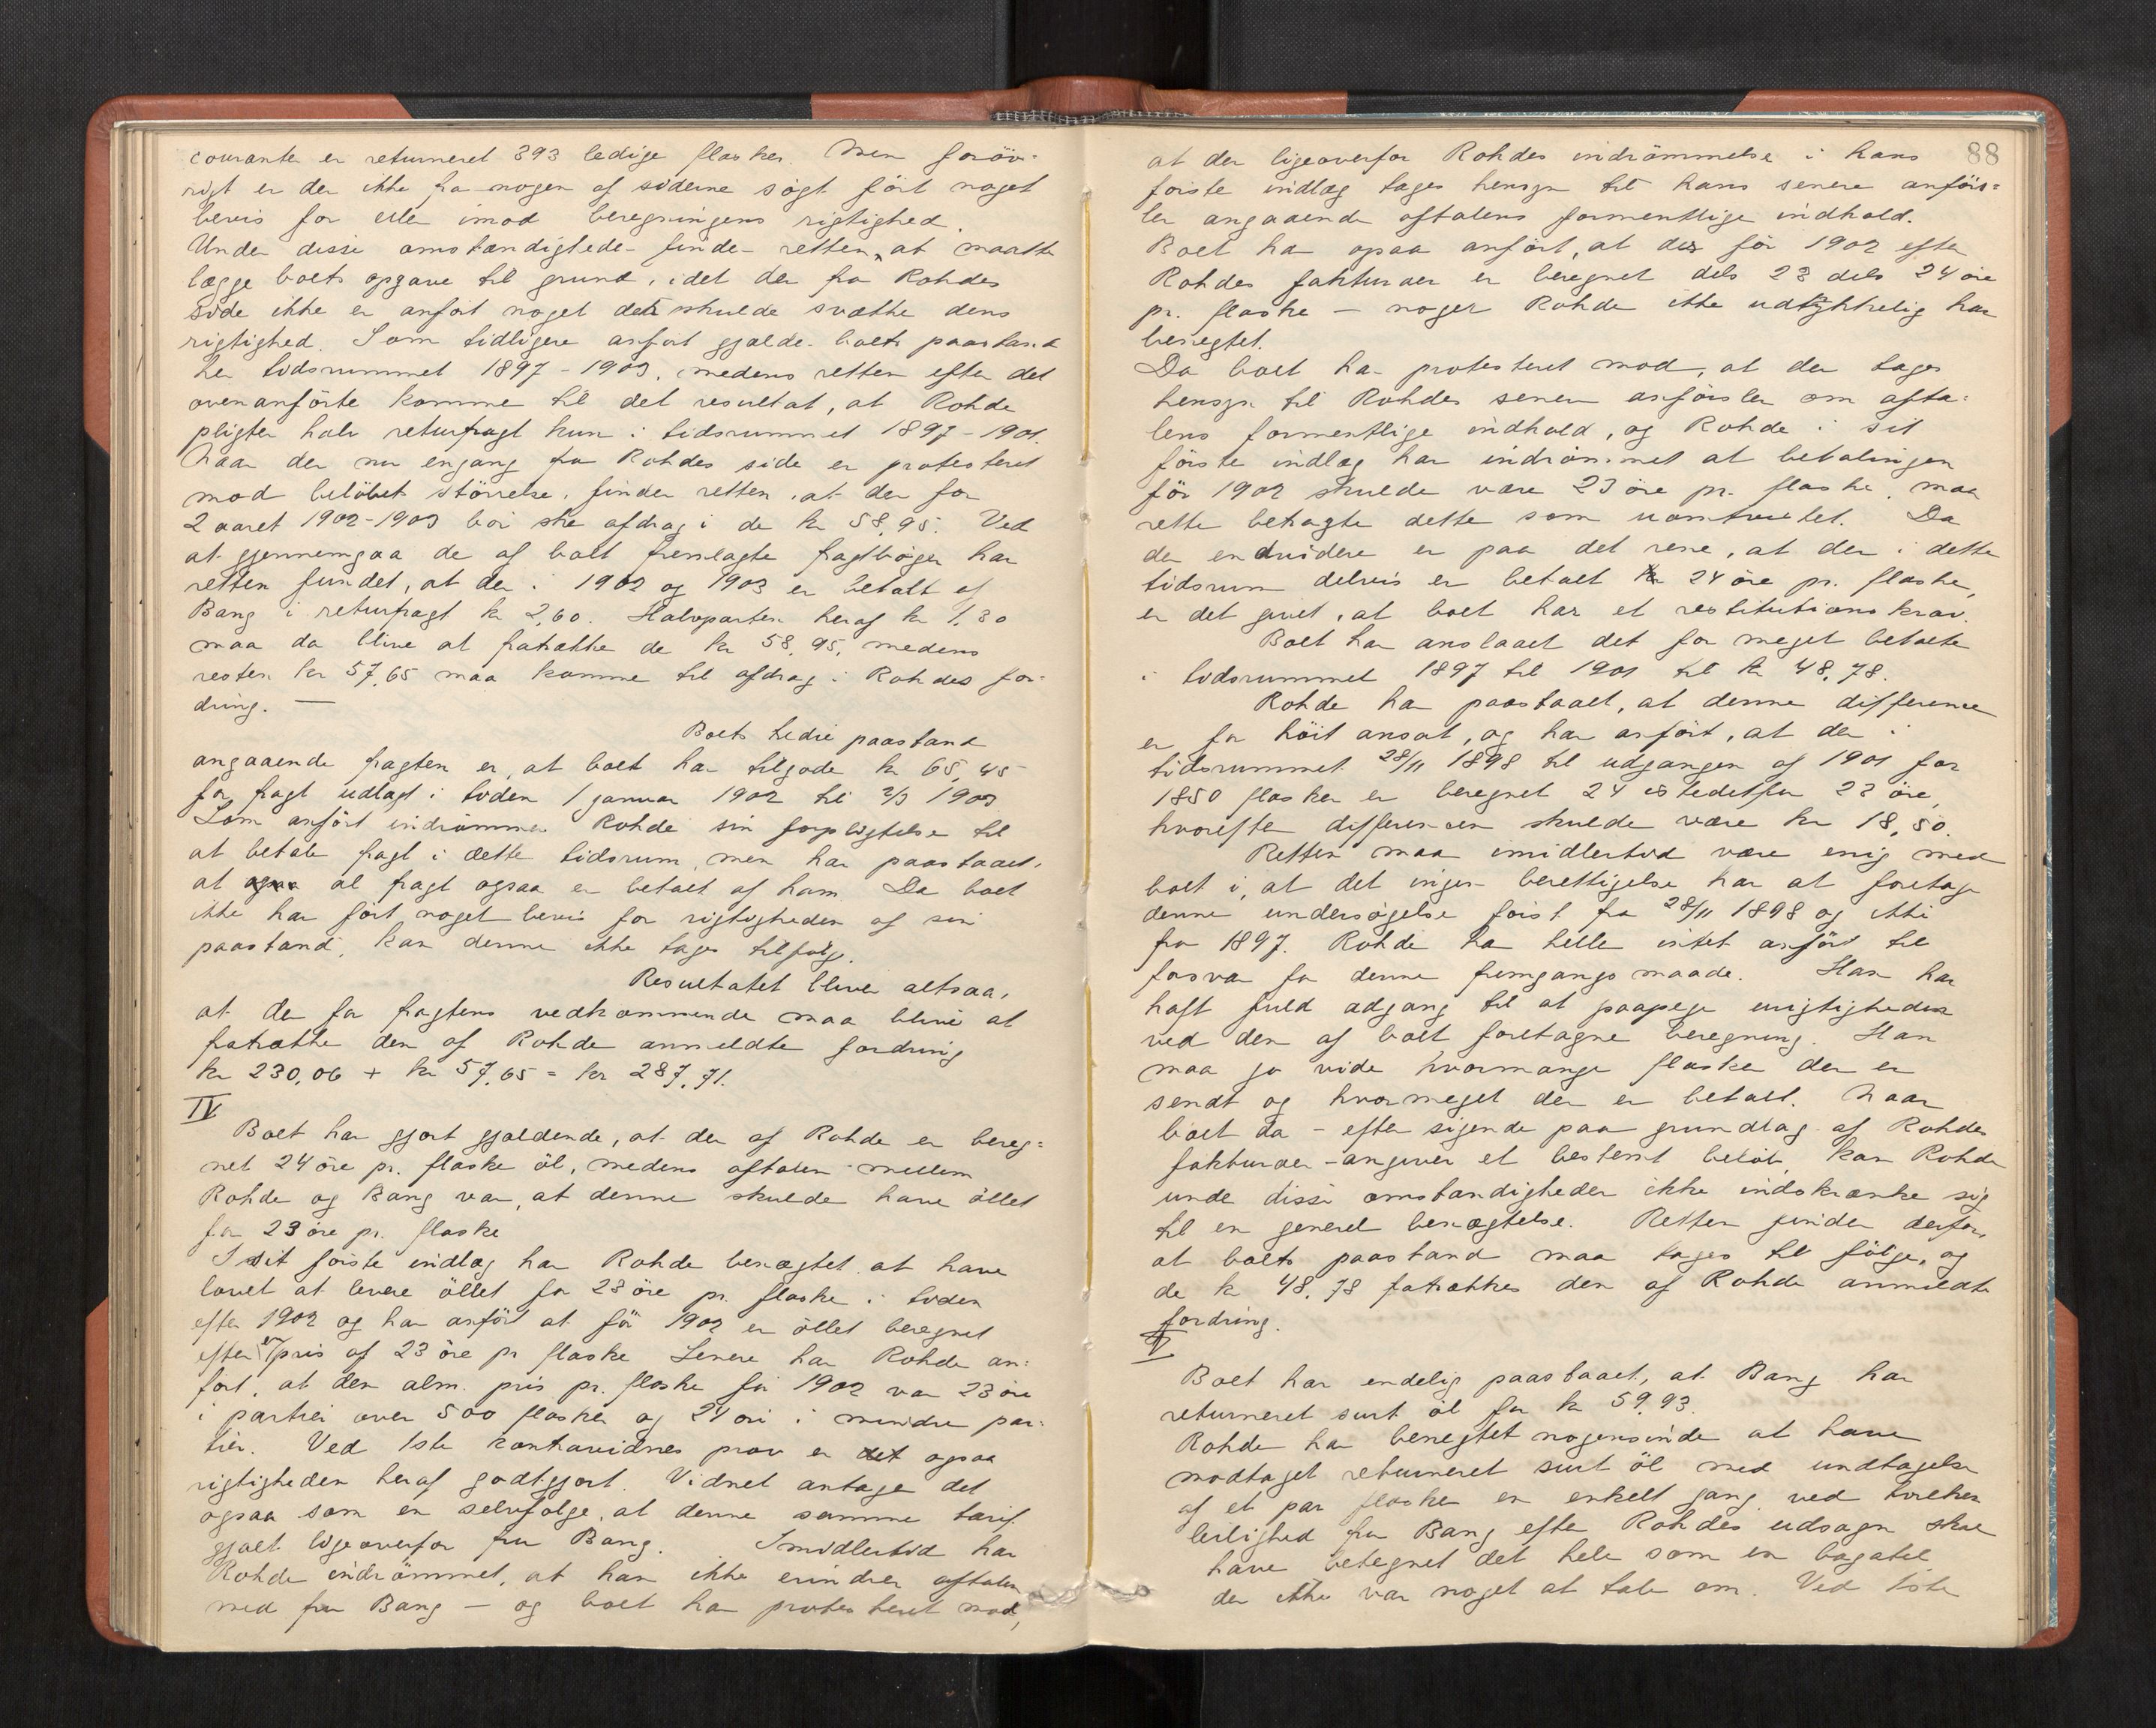 courante er returneret 393 ledige flasker. Men forøv-
rigt er der ikke fra nogen af siderne søgt ført noget
bevis for eller imod beregningens rigtighed.
Under disse omstændigheder finder retten, at maatte
lægge boets opgave til grund, idet der fra Rohdes
side ikke er anført noget der skulde svække dens
rigtighed. Som tidligere anført gjælder boets paastand
her tidsrummet 1897-1903, medens retten efter det
ovenanførte kommer til det resultat, at Rohde
pligter halv returfragt kun i tidsrummet 1897-1901.
Naar der nu engang fra Rohdes side er protesteret
mod beløbets størrelse, finder retten, at der for
2 aaret 1902-1903 bør ske afdrag i de kr 58,95. Ved
at gjennemgaa de af boet fremlagte fragtbøger har
retten fundet, at der i 1902 og 1903 er betalt af
Bang i returfragt kr 2,60. Halvparten heraf kr 1,30
maa da blive at fratrække de kr 58,95, medens
resten kr 57,65 maa komme til afdrag i Rohdes for-
dring. —
Boets tredie paastand
angaaende fragten er, at boet har tilgode kr 65,45
for fragt udlagt i tiden 1 januar 1902 til 2/3 1903
Som anført indrømmer Rohde sin forpligtelse til
at betale fragt i dette tidsrum, men har paastaaet,
at al fragt ogsaa er betalt af ham. Da boet
ikke har ført noget bevis for rigtigheden af sin
paastand, kan denne ikke tages tilfølge.
Resultatet bliver altsaa,
at der for fragtens vedkommende maa blive at
fratrække den af Rohde anmeldte fordring
kr 230,06 + kr 57,65 = kr 287,71.
IV
Boet har gjort gjældende, at der af Rohde er bereg-
net 24 øre pr. flaske øl, medens aftalen mellem
Rohde og Bang var, at denne skulde have øllet
for 23 øre pr. flaske
I sit første indlæg har Rohde benægtet at have
lovet at levere øllet for 23 øre pr. flaske i tiden
efter 1902 og har anført at før 1902 er øllet beregnet
efter en pris af 23 øre pr flaske Senere har Rohde an-
ført, at den alm. pris pr. flaske før 1902 var 23 øre
i partier over 500 flasker og 24 øre i mindre par-
tier. Ved 1ste kontravidnes prov er det ogsaa
rigtigheden heraf godtgjort. Vidnet antager det
ogsaa som en selvfølge, at denne samme tarif
gjaldt ligeoverfor fru Bang. Imidlertid har
Rohde indrømmet, at han ikke erindrer aftalen
med fru Bang — og boet har protesteret mod,
88
at der ligeoverfor Rohdes indrømmelse i hans
første indlæg tages hensyn til hans senere anførs-
ler angaaende aftalens formentlige indhold.
Boet har ogsaa anført, at der før 1902 efter
Rohdes fakturaer er beregnet dels 23 dels 24 øre
pr. flaske — noget Rohde ikke udtrykkelig har
benegtet.
Da boet har protesteret mod, at der tages
hensyn til Rohdes senere anførsler om afta-
lens formentlige indhold, og Rohde i sit
første indlæg har indrømmet at betalingen
før 1902 skulde være 23 øre pr. flaske, maa
retten betragte dette som uomtvistet. Da
der endvidere er paa det rene, at der i dette
tidsrum delvis er betalt 24 øre pr. flaske,
er det givet, at boet har et restitutionskrav.
Boet har anslaaet det for meget betalte
i tidsrummet 1897 til 1901 til kr 48,78.
Rohde har paastaaet, at denne difference
er for høit ansat, og har anført, at der i
tidsrummet 28/11 1898 til udgangen af 1901 for
1850 flasker er beregnet 24 istedetfor 23 øre,
hvorefter differencen skulde være kr 18,50.
Retten maa imidlertid være enig med
boet i, at det ingen berettigelse har at foretage
denne undersøgelse først fra 28/11 1898 og ikke
fra 1897. Rohde har heller intet anført til
forsvar for denne fremgangsmaade. Han har
haft fuld adgang til at paapege urigtigheden
ved den af boet foretagne beregning. Han
maa jo vide hvormange flasker der er
sendt og hvormeget der er betalt. Naar
boet da - efter sigende paa grundlag af Rohdes
fakturaer - angiver et bestemt beløb, kan Rohde
under disse omstændigheder ikke indskrænke sig
til en generel benægtelse. Retten finder derfor,
at boets paastand maa tages til følge, og
de kr 48,78 fratrækkes den af Rohde anmeldte
fordring.
V
Boet har endelig paastaaet, at Bang har
returneret surt øl for kr 59,93.
Rohde har benegtet nogensinde at have
modtaget returneret surt øl med undtagelse
af et par flasker en enkelt gang, ved hvilken
leilighed fru Bang efter Rohdes udsagn skal
have betegnet det hele som en bagatel
der ikke var noget at tale om. Ved 1ste